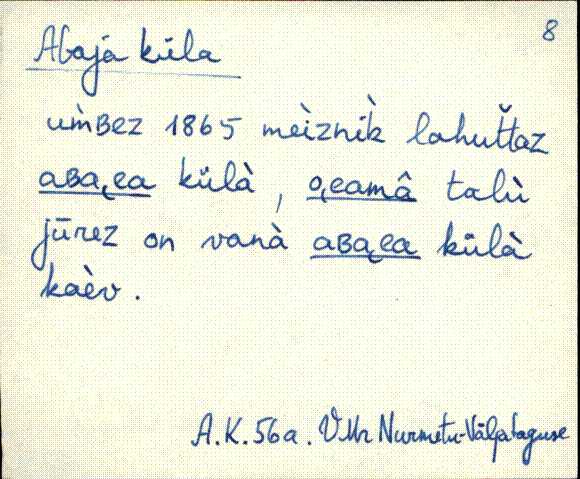 8
Abaja küla
um̀ʙez 1865 mèiznik̀ lahut̆taz
aʙa̜ea külà, o̜eamâ talù
jūrez on vanà aʙa̜ea külà
kaèv.
A.K. 56a. VMr Nurmetu-Väljataguse